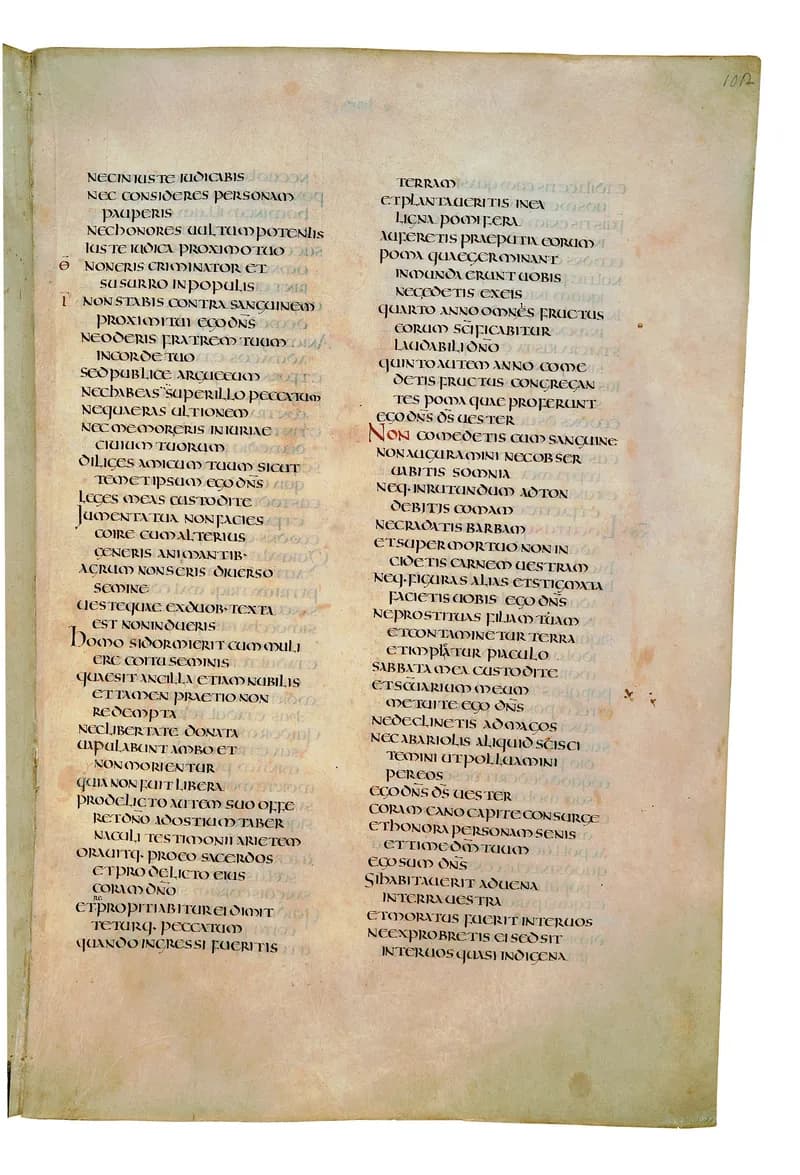 102
NECINIUSTE IUDICABIS
NEC CONSIDERES PERSONAM
PAUPERIS
NECHONORES UULTUMPOTENTIS
IUSTE IUDICA PROXIMOTUO
NONERIS CRIMINATOR ET
SUSURRO INPOPULIS
NONSTABIS CONTRA SANGUINEM
PROXIMITUI EGO DN̅S
NEODERIS FRATREM TUUM
INCORDETUO
SEDPUBLICE ARGUEEUM
NECHABEAS SUPERILLO PECCATUM
NEQUAERAS ULTIONEM
NECMEMORERIS INIURIAE
CIUIUM TUORUM
DILIGES AMICUM TUUM SICUT
TEMETIPSUM EGO DN̅S
LEGES MEAS CUSTODITE
IUMENTATUA NONFACIES
COIRE CUMALTERIUS
GENERIS ANIMANTIB·
AGRUM NONSERIS DIUERSO
SEMINE
UESTEQUAE EXDUOB·TEXTA
EST NONINDUERIS
HOMO SIDORMIERIT CUMMULI
ERE COITUSEMINIS
QUAESIT ANCILLA ETIAMNUBILIS
ETTAMEN PRAETIO NON
REDEMPTA
NECLIBERTATE DONATA
UAPULABUNT AMBO ET
NONMORIENTUR
QUIA NONFUIT LIBERA
PRODELICTO AUTEM SUO OFFE
RETDN̅O ADOSTIUM TABER
NACULI TESTIMONII ARIETEM
ORAUITQ· PROEO SACERDOS
ETPRODELICTO EIUS
CORAM DN̅O
ETREPROPITIABITUR EI DIMIT
TETURQ· PECCATUM
QUANDO INGRESSI FUERITIS
TERRAM
ETPLANTAUERITIS INEA
LIGNA POMIFERA
AUFERETIS PRAEPUTIA EORUM
POMA QUAEGERMINANT
INMUNDA ERUNT UOBIS
NECEDETIS EXEIS
QUARTO ANNO OMNES FRUCTUS
EORUM SC̅IFICABITUR
LAUDABILI DN̅O
QUINTOAUTEM ANNO COME
DETIS FRUCTUS CONGREGAN
TES POMA QUAE PROFERUNT
EGO DN̅S D̅S UESTER
NON COMEDETIS CUM SANGUINE
NONAUGURAMINI NECOBSER
UABITIS SOMNIA
NEQ· INRUTUNDUM ADTON
DEBITIS COMAM
NECRADATIS BARBAM
ETSUPERMORTUO NON IN
CIDETIS CARNEM UESTRAM
NEQ·FIGURAS ALIAS ETSTIGMATA
FACIETIS UOBIS EGO DN̅S
NEPROSTITUAS FILIAM TUAM
ETCONTAMINETUR TERRA
ETIMPLEATUR PIACULO
SABBATA MEA CUSTODITE
ETSC̅UARIUM MEUM
METUITE EGO DN̅S
NEDECLINETIS ADMAGOS
NECABARIOLIS ALIQUID SCISCI
TEMINI UTPOLLUAMINI
PEREOS
EGO DN̅S D̅S UESTER
CORAM CANO CAPITE CONSURGE
ETHONORA PERSONAM SENIS
ETTIME DM̅ TUUM
EGO SUM DN̅S
SIHABITAUERIT ADUENA
INTERRA UESTRA
ETMORATUS FUERIT INTERUOS
NEEXPROBRETIS EI SEDSIT
INTERUOS QUASI INDIGENA